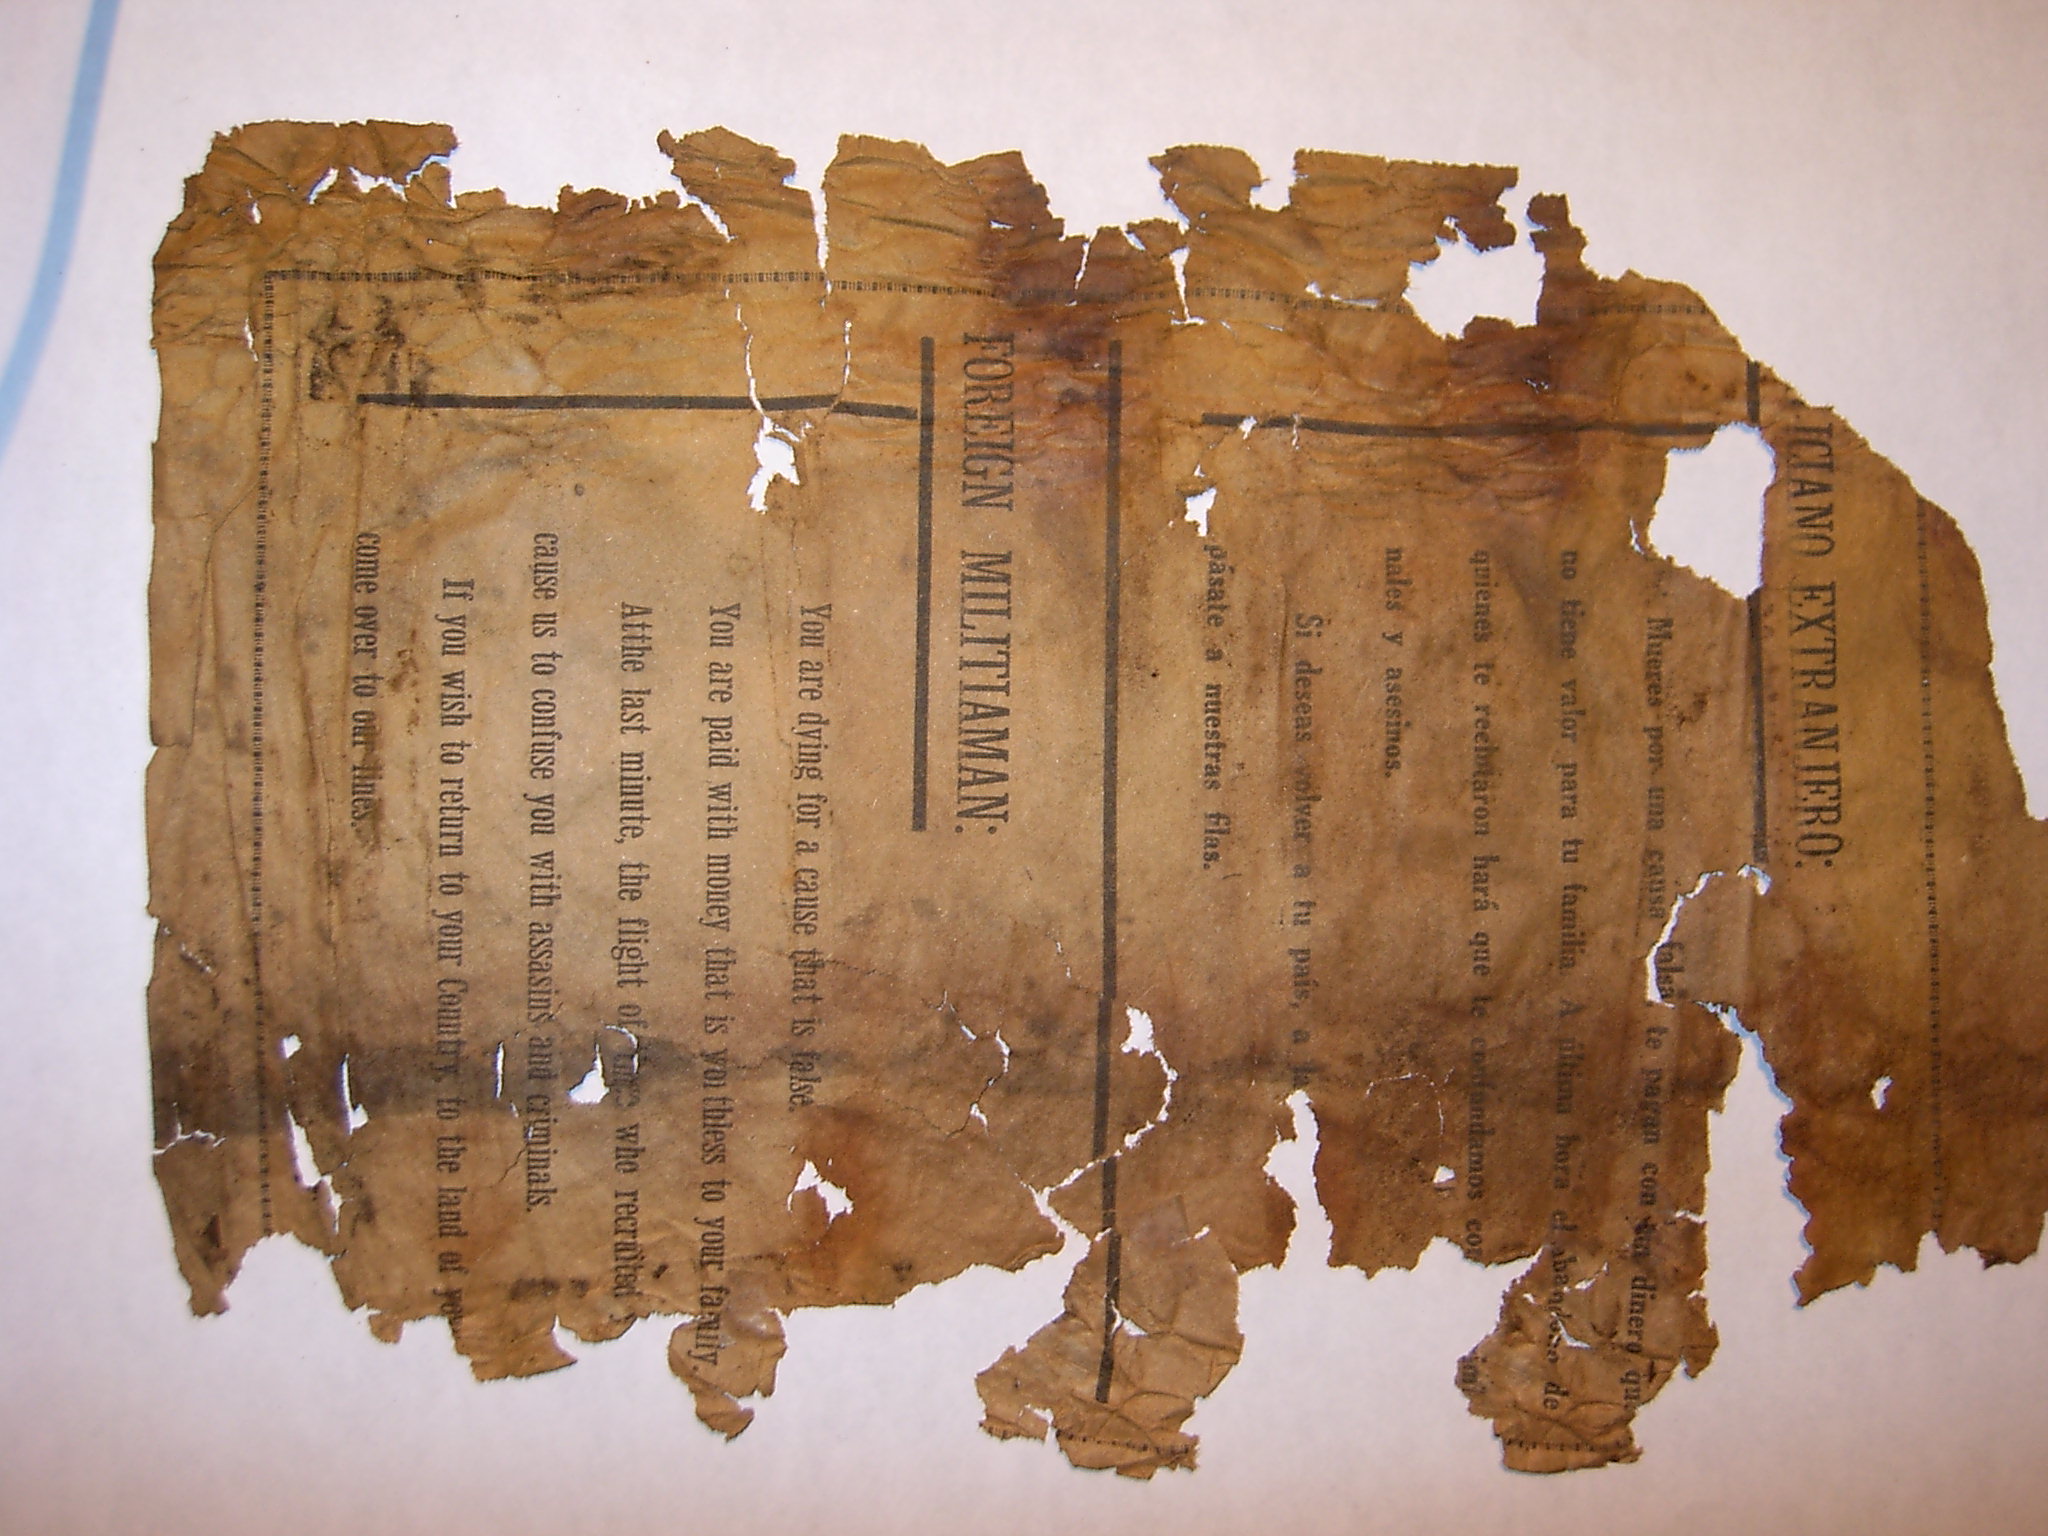 ICIANO EXTRANJERO:
Mueres por una causa falsa te pagan con un dinero que
no tiene valor para tu familia. A última hora el abandono de
quienes te reclutaron hará que te confundamos con
nales y asesinos.
Si deseas volver a tu país, a
pásate a nuestras filas.
FOREIGN MILITIAMAN:
You are dying for a cause that is false.
You are paid with money that is worthless to your family.
Atthe last minute, the flight of who recruited
cause us to confuse you with assasins and criminals.
If you wish to return to your Country, to the land of
come over to our lines.